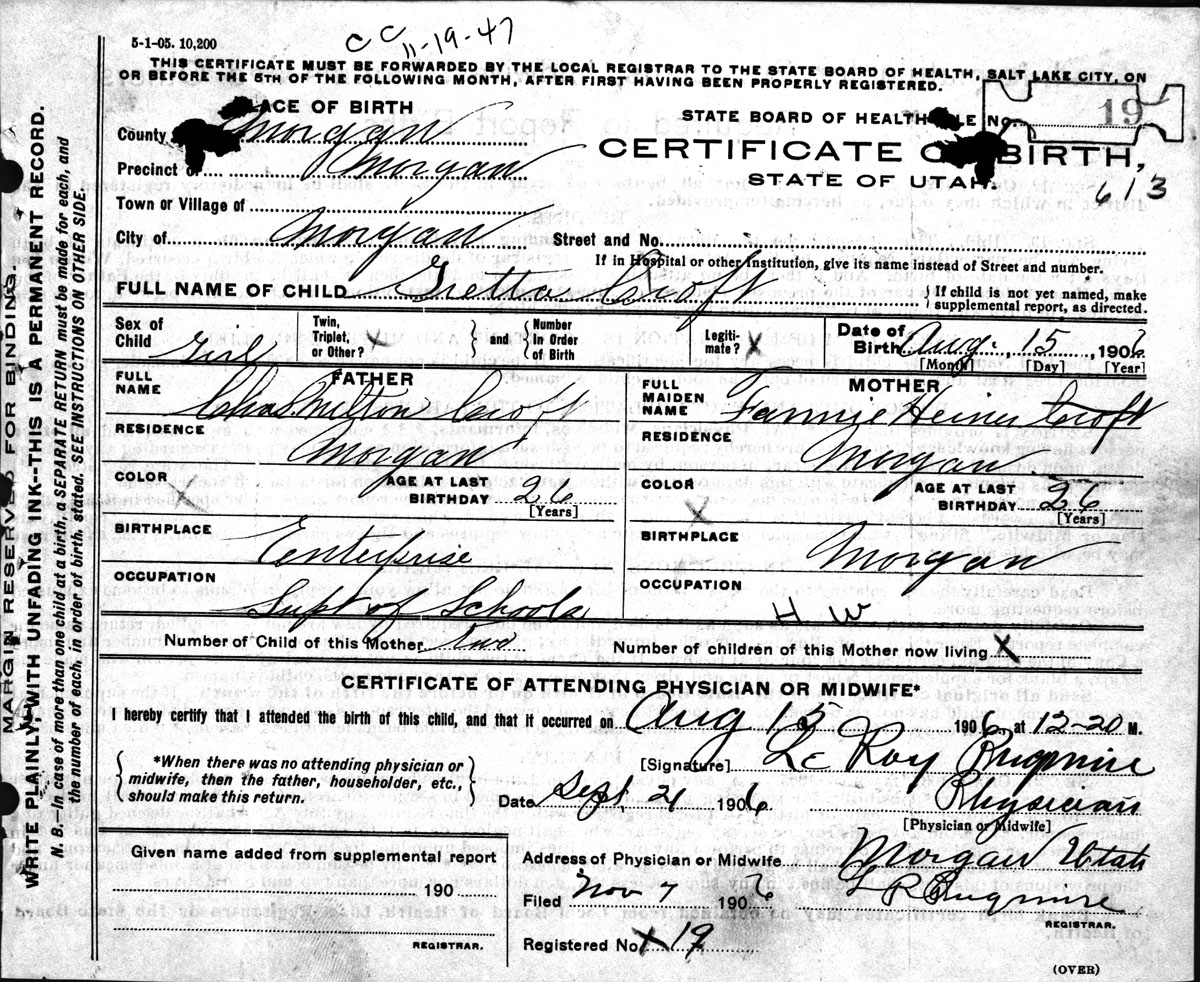 5-1-05. 10,200
CC 11-19-47
THIS CERTIFICATE MUST BE FORWARDED BY THE LOCAL REGISTRAR TO THE STATE BOARD OF HEALTH, SALT LAKE CITY, ON
OR BEFORE THE 5TH OF THE FOLLOWING MONTH, AFTER FIRST HAVING BEEN PROPERLY REGISTERED.
PLACE OF BIRTH
County Morgan
Precinct of Morgan
Town or Village of
City of Morgan
STATE BOARD OF HEALTH No. 19
CERTIFICATE OF BIRTH,
STATE OF UTAH.
613
Street and No.
If in Hospital or other Institution, give its name instead of Street and number.
FULL NAME OF CHILD Gretta Croft
{If child is not yet named, make
supplemental report, as directed.
Sex of Child Girl
Twin, Triplet, or Other? X
and
Number In Order of Birth
Legiti-mate? X
Date of Birth Aug. 15, 1906
[Month] [Day] [Year]
FATHER
FULL NAME Chas. Milton Croft
RESIDENCE Morgan
COLOR X
AGE AT LAST BIRTHDAY 26
[Years]
BIRTHPLACE Enterprise
OCCUPATION Supt of Schools
MOTHER
FULL MAIDEN NAME Fannie Heiner Croft
RESIDENCE Morgan
COLOR X
AGE AT LAST BIRTHDAY 26
[Years]
BIRTHPLACE Morgan
OCCUPATION H W
Number of Child of this Mother Two
Number of children of this Mother now living X
CERTIFICATE OF ATTENDING PHYSICIAN OR MIDWIFE*
I hereby certify that I attended the birth of this child, and that it occurred on Aug 15 1906, at 12-20 M.
{*When there was no attending physician or
midwife, then the father, householder, etc.,
should make this return.}
[Signature] Le Roy
Date Sept 21 1906
Physician
[Physician or Midwife]
Given name added from supplemental report
190
REGISTRAR.
Address of Physician or Midwife Morgan Utah
Filed Nov 7 1906 L R
REGISTRAR.
Registered No. X 19
(OVER)
MARGIN RESERVED FOR BINDING.
WRITE PLAINLY, WITH UNFADING INK--THIS IS A PERMANENT RECORD.
N. B.--In case of more than one child at a birth, a SEPARATE RETURN must be made for each, and
the number of each, in order of birth, stated. SEE INSTRUCTIONS ON OTHER SIDE.